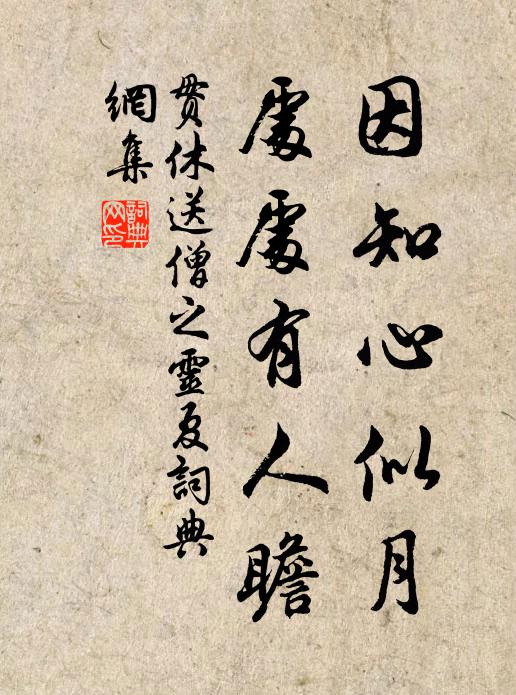 因知心似月
處處有人瞻
貫休送僧之靈夏詞典
網集
詞典
網印